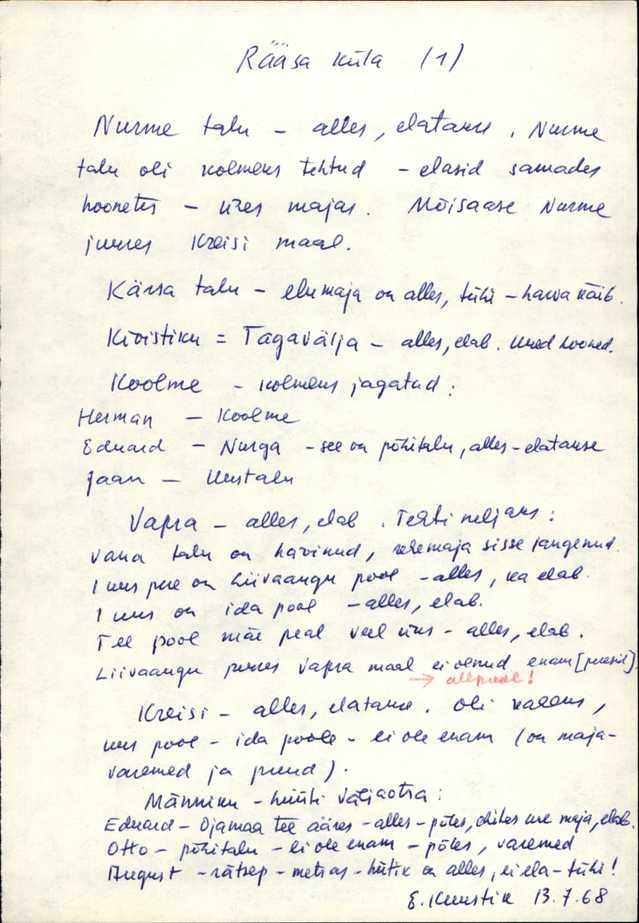 Rääsa küla (1)
Nurme talu - alles, elatakse. Nurme
talu oli kolmeks tehtud - elasid samades
hoonetes - ühes majas. Mõisaase Nurme
juures Kreisi maal.
Kärsa talu - elumaja on alles, tühi - harva käib.
Kivistiku = Tagavälja - alles, elab. Uued hooned.
Koolme - kolmeks jagatud:
Herman - Koolme
Eduard - Nurga - see on põhitalu, alles - elatakse
Jaan - Uustalu
Vapra - alles, elab. Tehti neljaks:
vana talu on hävinud, rehemaja sisse langenud.
1 uus pere on Liivaaugu pool - alles, ka elab.
1 uus on ida pool - alles, elab.
Tee pool mäe peal veel üks - alles, elab.
Liivaaugu juures Vapra maal ei olnud enam [peresid].
→ allpool!
Kreisi - alles, elatakse. Oli kaheks,
uus pool - ida poole - ei ole enam (on maja-
varemed ja puud).
Männiku - hüüti Väljaotsa:
Eduard - Ojamaa tee ääres - alles - põles, ehitas uue maja, elab.
Otto - põhitalu - ei ole enam - põles, varemed
August - rätsep - metsas - hütik on alles, ei ela - tühi!
E. Kuustik 13.7.68